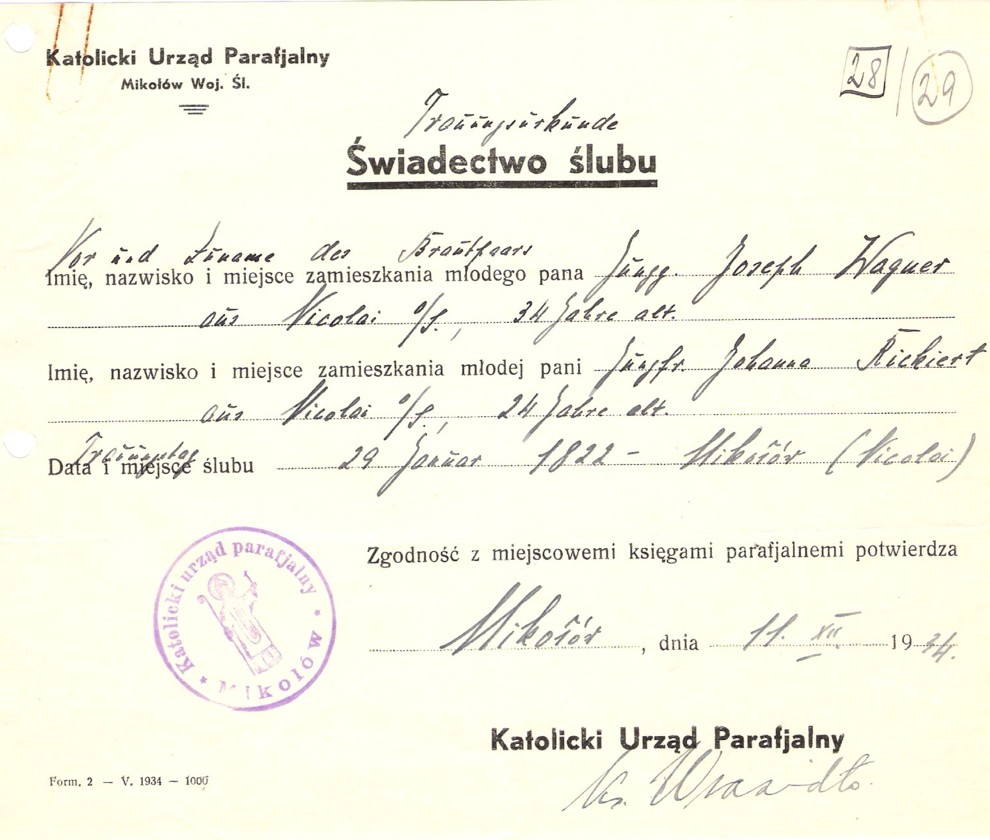 Katolicki Urząd Parafjalny
Mikołów Woj. Śl.
28 / 29
Trauungsurkunde
Świadectwo ślubu
Vor und Zuname des Brautpaars
Imię, nazwisko i miejsce zamieszkania młodego pana Jungg. Joseph Wagner
aus Nicolai o/S., 34 Jahre alt.
Imię, nazwisko i miejsce zamieszkania młodej pani Jungfr. Johanna Kickiert
aus Nicolai o/S., 24 Jahre alt.
Trauungstag
Data i miejsce ślubu 29 Januar 1822 - Mikołów (Nicolai)
Zgodność z miejscowemi księgami parafjalnemi potwierdza
Mikołów, dnia 11. XII. 1934.
Katolicki urząd parafjalny
Mikołów
Katolicki Urząd Parafjalny
Ks.
Form. 2 — V. 1934 — 1000